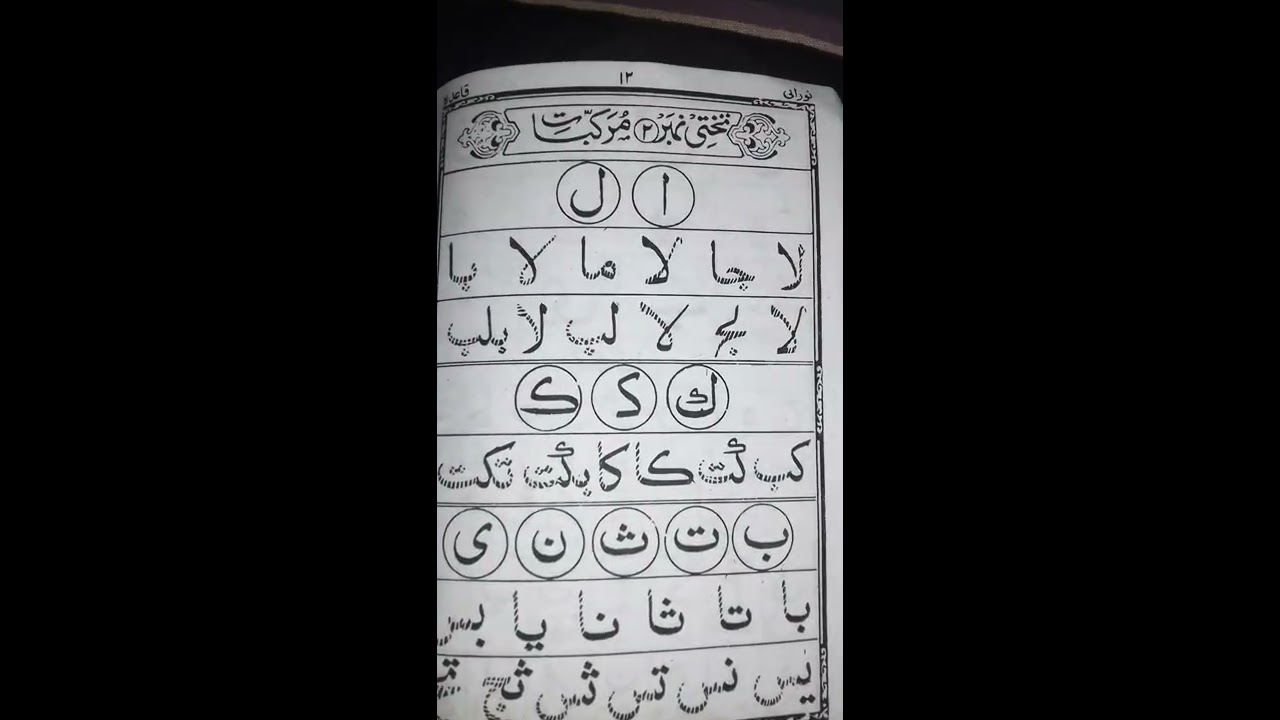 نورانی ۱۲ قاعدہ
تختی نمبر ۲ مرکبات
ا ل
لا جا لا ما لا با
لا لج لا لب لا بلب
ك ک ک
کب كت کا کا بكت تکت
ب ت ث ن ی
با تا ثا نا یا بس
یس نس تس ثس ثج